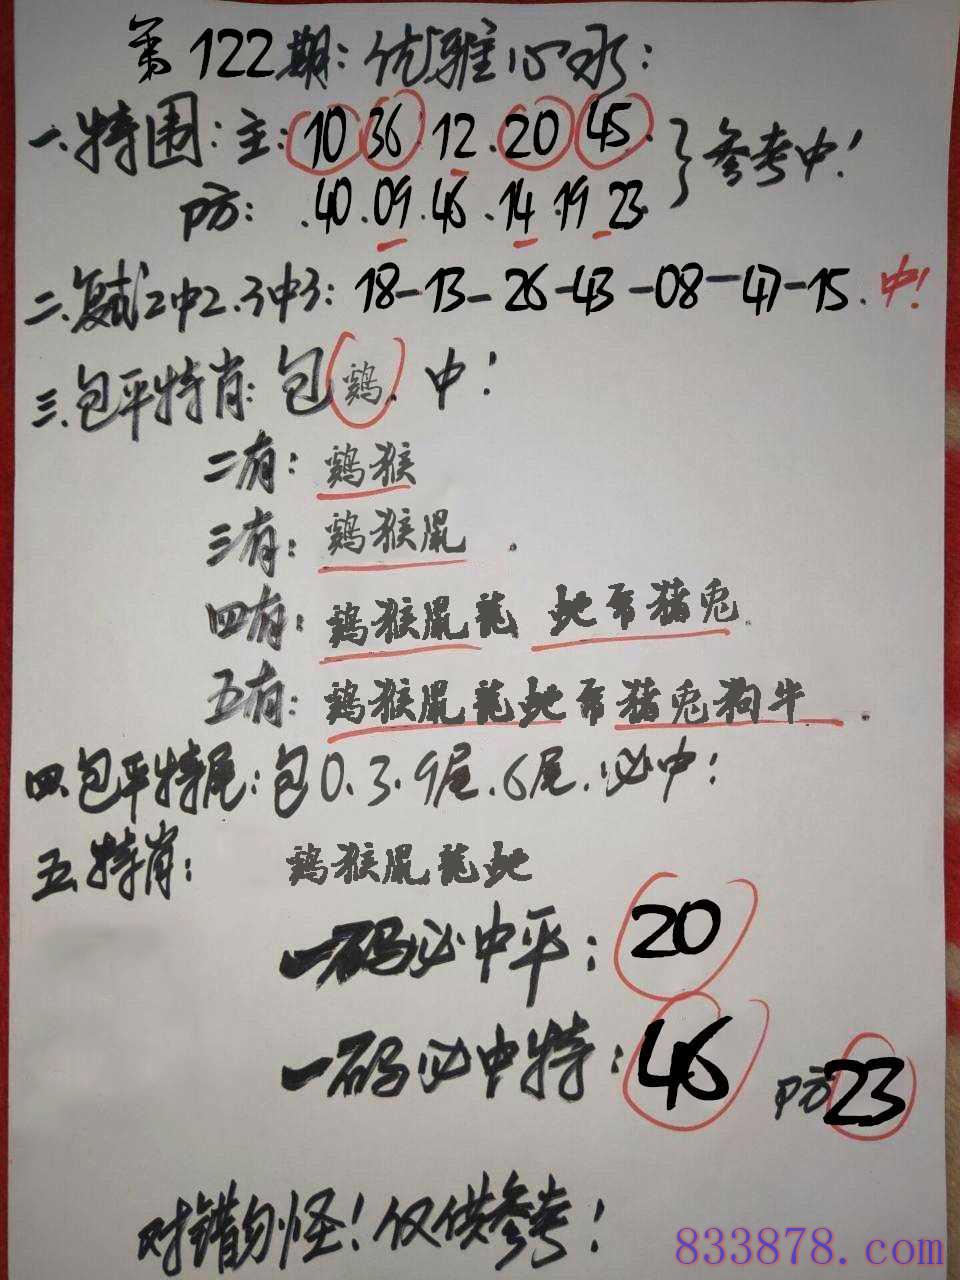 第122期:优雅心水:
一.特围:主:10 36.12.20 45. }参考中!
防:.40.09.46.14.19 23.
二.复试2中2.3中3:18-13-26-43-08-47-15.中!
三.包平特肖:包鷄.中!
二有:鷄猴
三有:鷄猴鼠.
四有:鷄猴鼠龍 虵马猪兎.
五有:鷄猴鼠龍虵马猪兎狗牛.
四.包平特尾:包0.3.9尾.6尾.必中!
五.特肖:鷄猴鼠龍虵
一码必中平:20
一码必中特:46 防23
对错勿怪!仅供参考!
833878.com